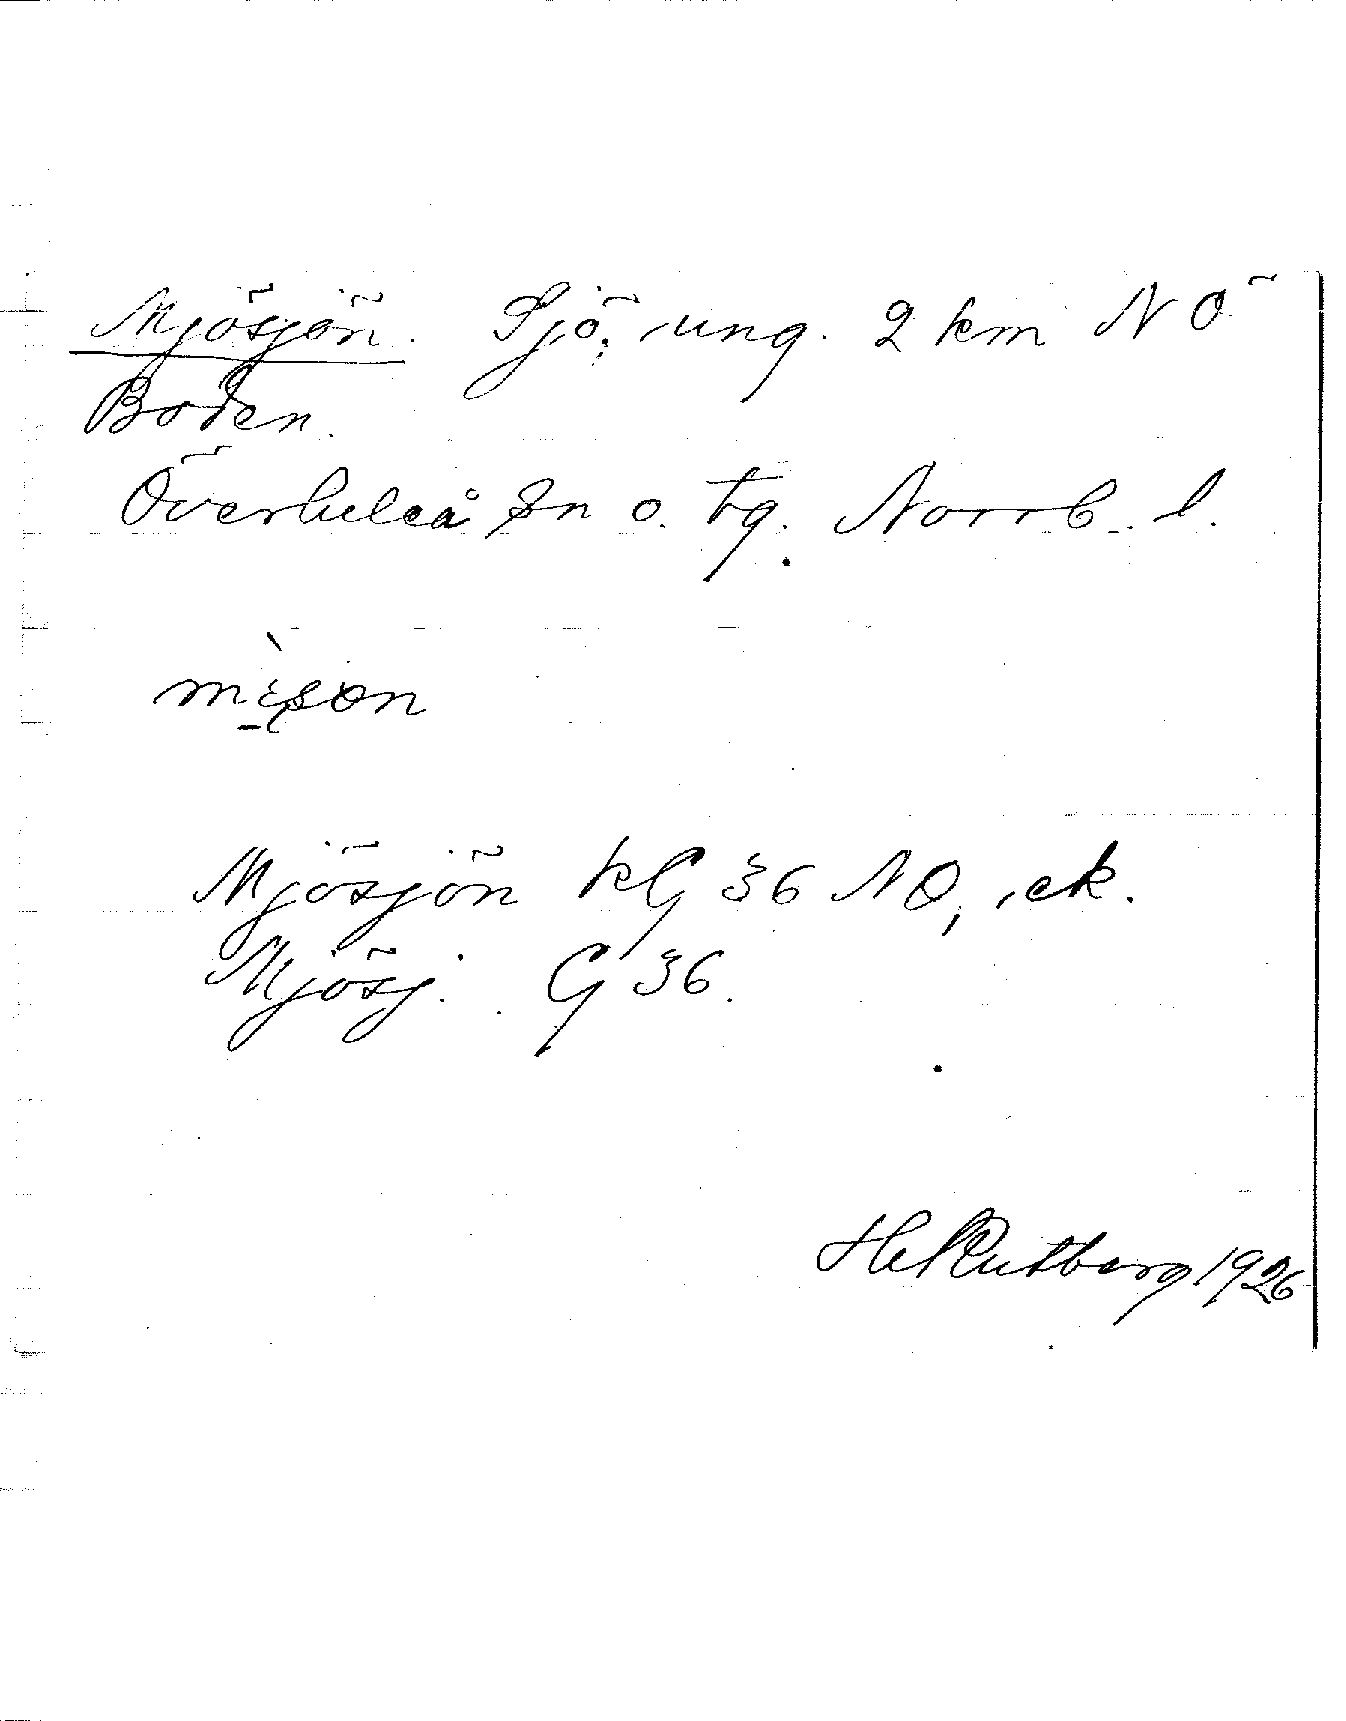 Mjösjön. Sjö, ung. 2 km NÖ
Boden.
Överluleå sn o. tg. Norrb. l.
Mjösjön kG 36 NO, ek.
Mjösj. G 36.
H Rutberg 1926